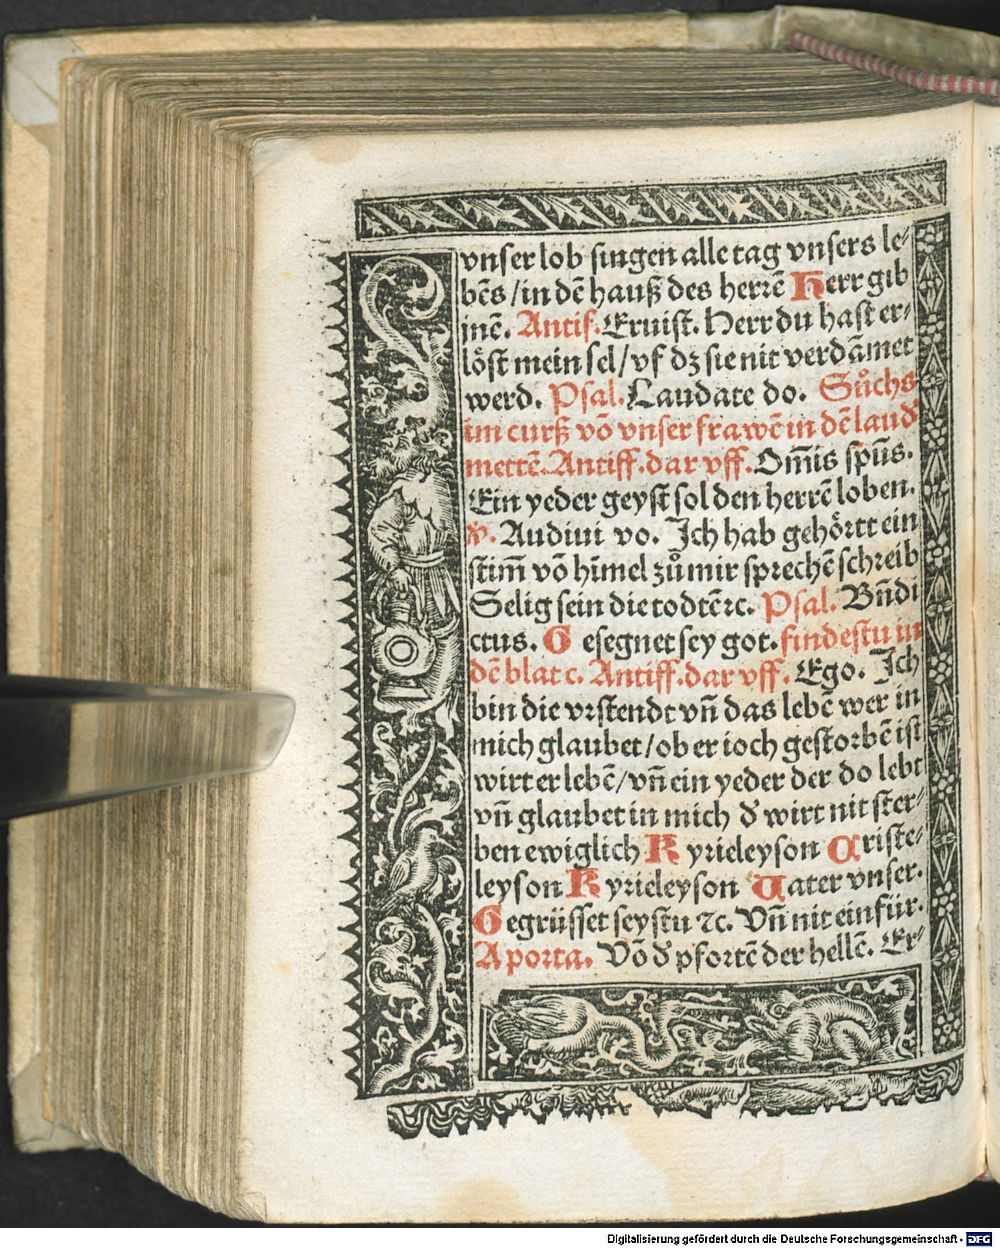 vnser lob singen alle tag vnsers le⸗
bẽs /in dẽ hauß des herrẽ Herr gib
inẽ. Antif. Eruist. Herr du hast er⸗
lőst mein sel/vf dz sie nit verdãmet
werd. Psal. Laudate do. Sůchs
im curß võ vnser frawẽ in dẽ laud᷒
mettẽ. Antiff. dar vff. Om̃is sp̃us.
Ein yeder geyst sol den herrẽ loben.
℣. Audiui vo. Ich hab gehőrtt ein
stim̃ võ hĩmel zů mir sprechẽ schreib
Selig sein die todtẽ ꝛc. Psal. Bñdi
ctus. G esegnet sey got. findestu in
dẽ blat c. Antiff. dar vff. Ego. Ich
bin die vrstendt vñ das lebẽ wer in
mich glaubet/ob er ioch gestorbẽ ist
wirt er lebẽ/vñ ein yeder der do lebt
vñ glaubet in mich d᷒ wirt nit ster⸗
ben ewiglich K yrieleyson Criste⸗
leyson K yrieleyson Vater vnser.
Gegrüsset seystu ꝛc. Vñ nit ein für.
A porta. Võ d᷒ pfortẽ der hellẽ. Er⸗
Digitalisierung gefördert durch die Deutsche Forschungsgemeinschaft - DFG